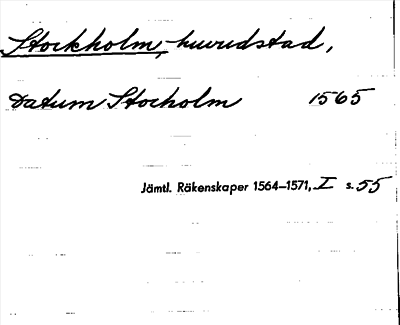 Stockholm, huvudstad,
Datum Stocholm 1565
Jämtl. Räkenskaper 1564–1571, I s. 55